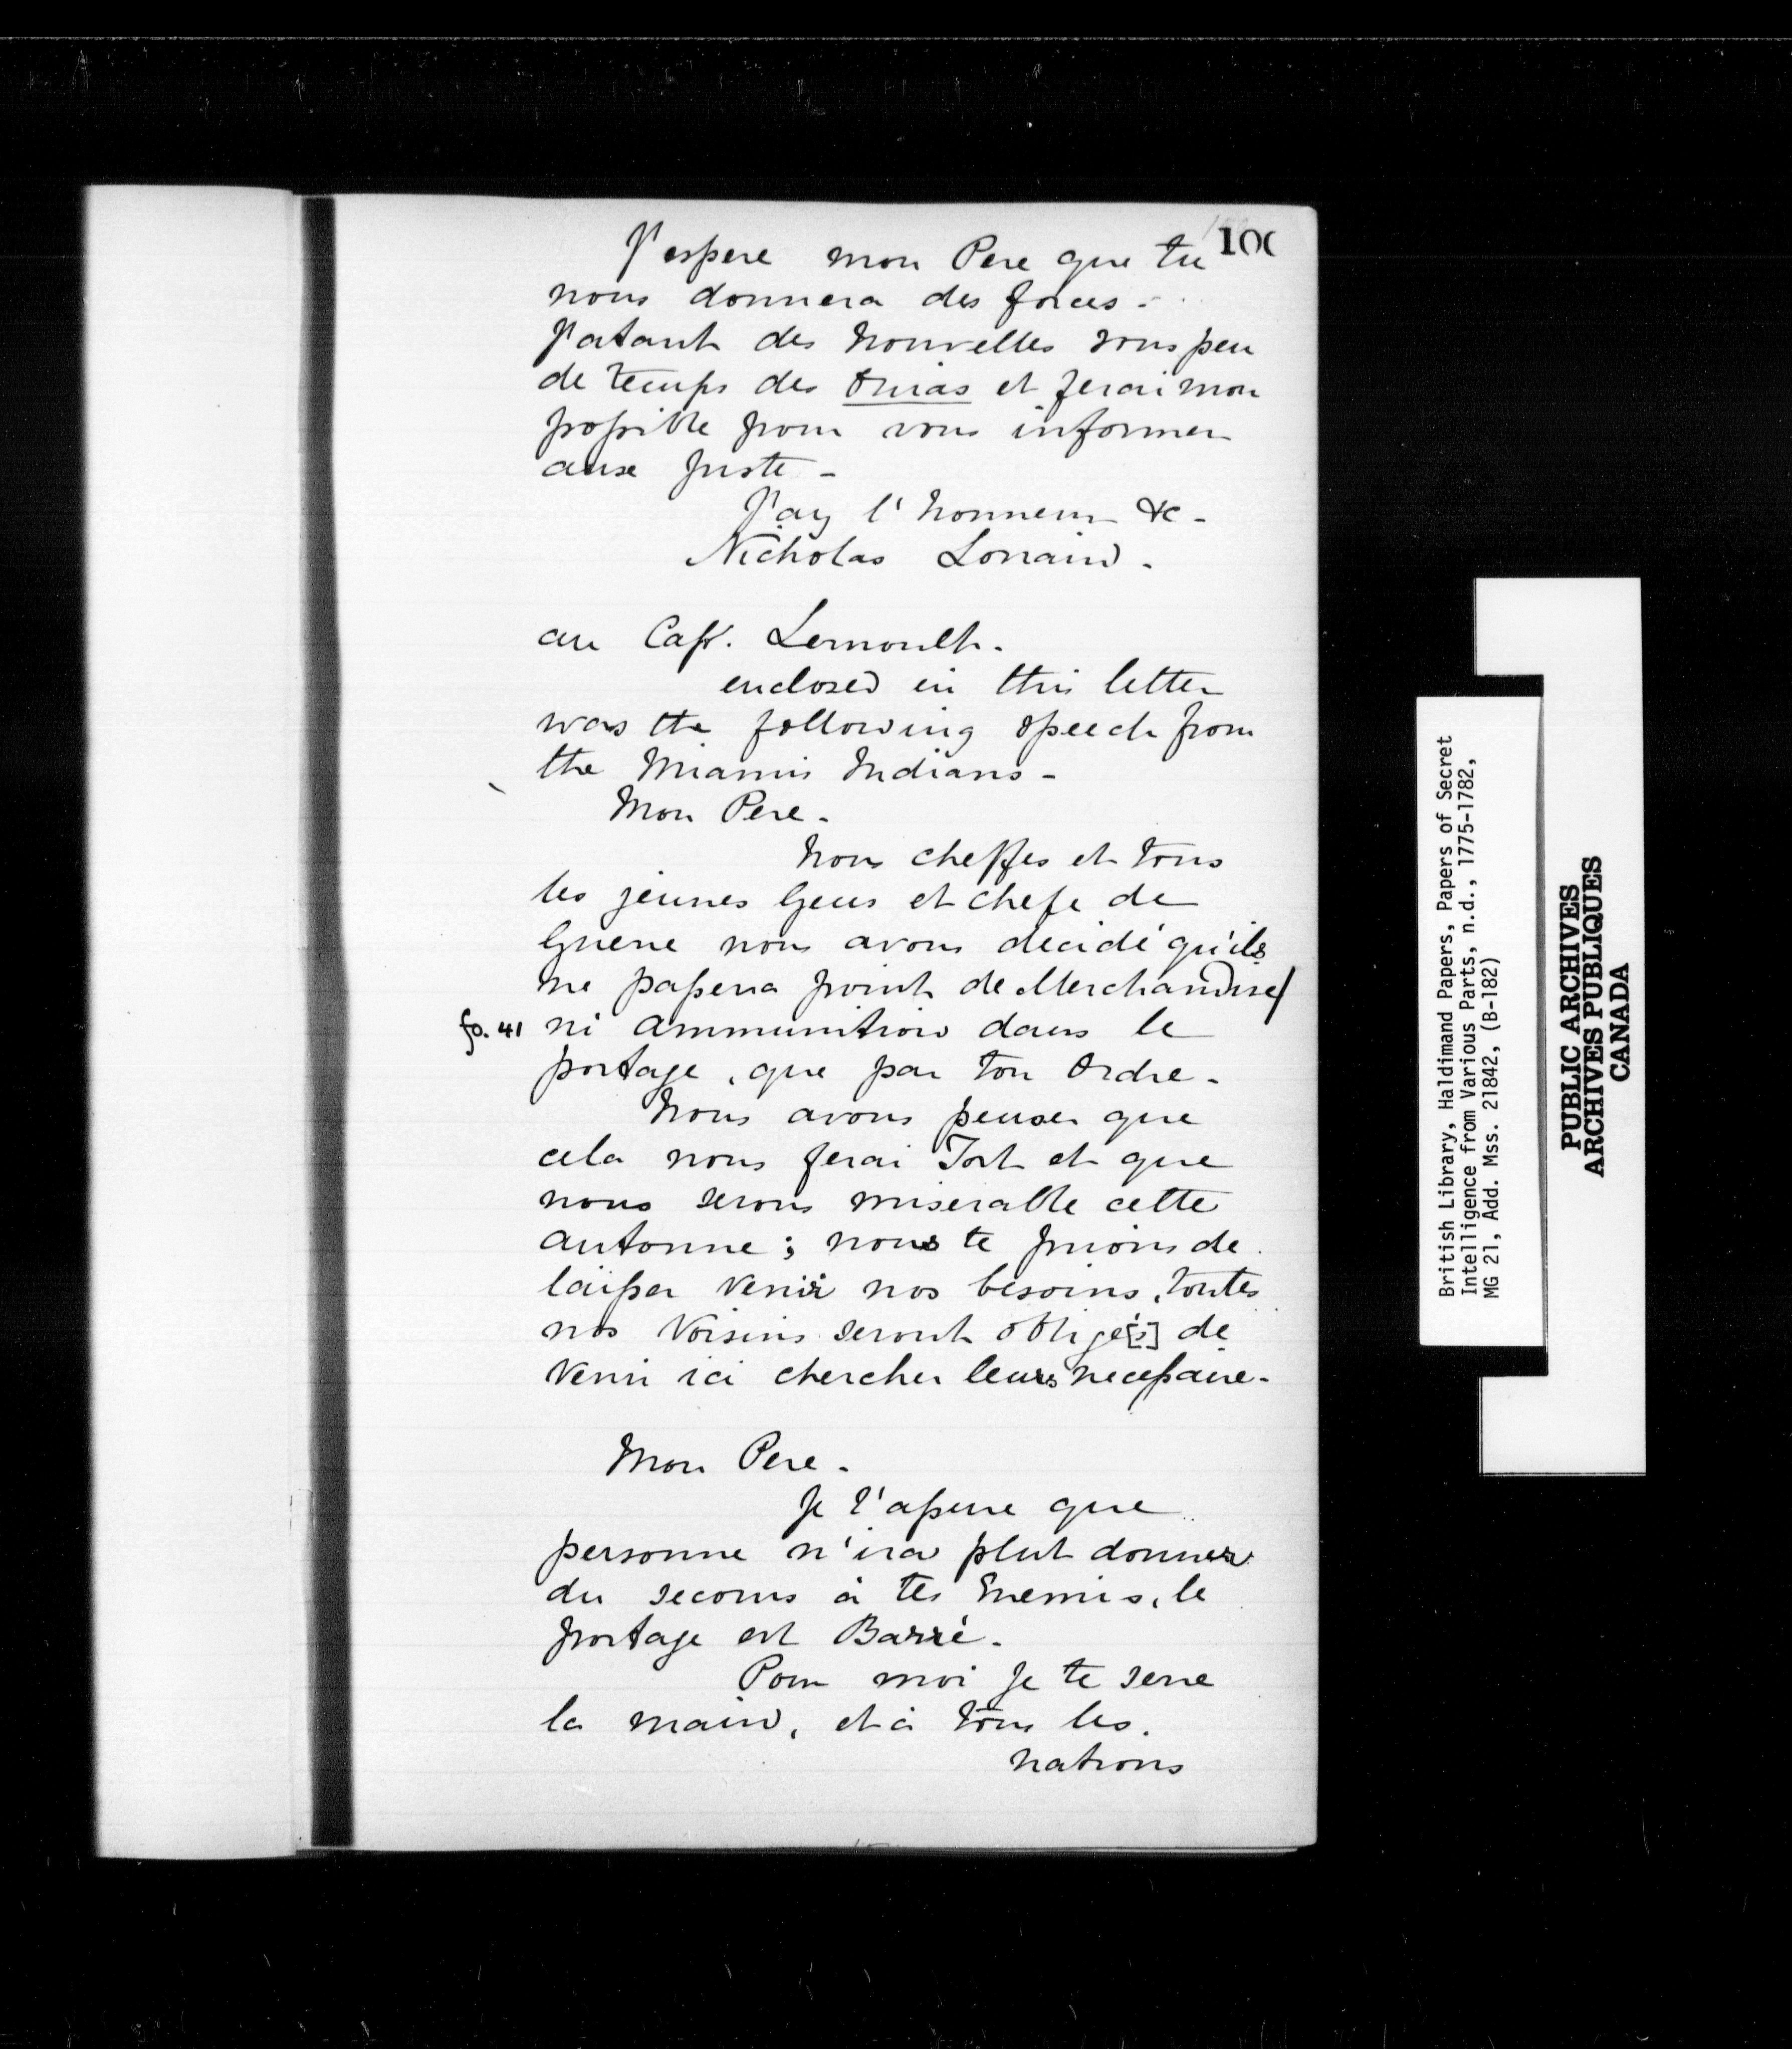 100
J'espere mon Pere que tu
nous donnera des forces -
J'atant des Nouvelles sous peu
de temps des Ouias et ferai mon
possible pour vous informer
ausse juste -
J'ay l'honneur &c -
Nicholas Lorrain -
au Capt. Lernoult.
enclosed in this letter
was the following speech from
the Miamis Indians -
Mon Pere -
Nous cheffes et tous
les jeunes Gens et chefe de
Guerre nous avons décidé qu'ils
ne passera point de Merchandise/
fo. 41 ni ammunition dans le
portage, que par ton Ordre -
Nous avons penser que
cela nous ferai Tort et que
nous serons miserable cette
autonne; nous te prions de
laisser venir nos besoins, toutes
nos Voisins seront obligé[s] de
venir ici chercher leurs necessaire -
Mon Pere -
Je t'assure que
personne n'ira plut donner
du secours à tes Enemis, le
portage est Barré -
Pour moi Je te serre
la main, et à tous les.
nations
British Library, Haldimand Papers, Papers of Secret
Intelligence from Various Parts, n.d., 1775-1782,
MG 21, Add. Mss. 21842, (B-182)
PUBLIC ARCHIVES
ARCHIVES PUBLIQUES
CANADA